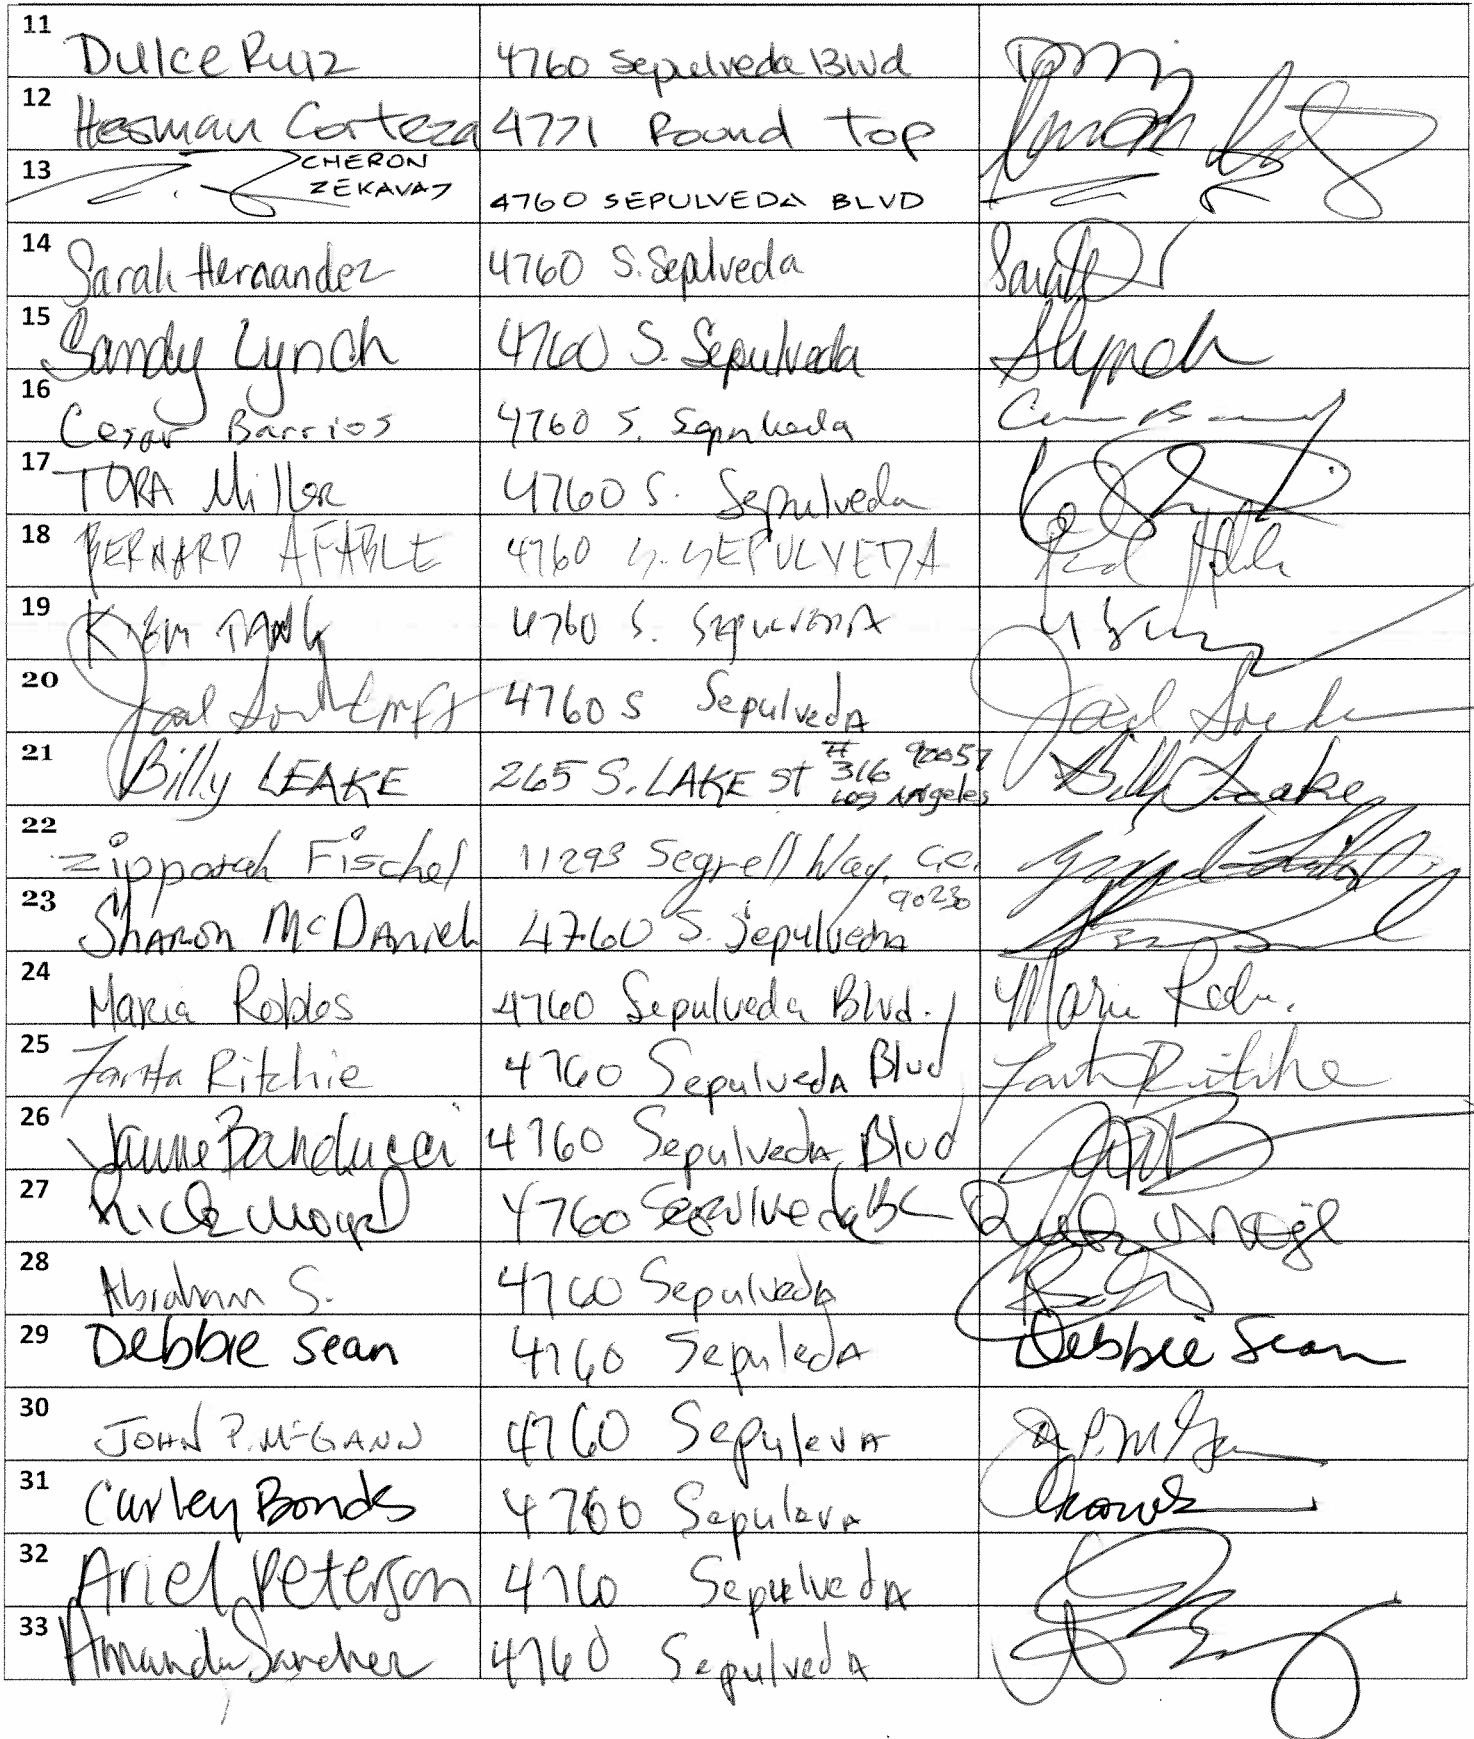 11 Dulce Ruiz 4760 Sepulveda Blvd
12 Hesman Corteza 4771 Round Top
13 CHERON
ZEKAVAT 4760 SEPULVEDA BLVD
14 Sarah Hernandez 4760 S. Sepulveda Sarah
15 Sandy Lynch 4760 S. Sepulveda SLynch
16 Cesar Barrios 4760 S. Sepulveda
17 TORA Miller 4760 S. Sepulveda
18 BERNARD AFABLE 4760 S. SEPULVEDA
19 KIEM TANG 4760 S. SEPULVEDA
20 4760 S Sepulveda
21 Billy LEAKE 265 S. LAKE St # 316 90057 Billy Leake
Los Angeles
22 Zipporah Fischel 11293 Segrell Way, C.C.
90230
23 Sharon McDaniel 4760 S. Sepulveda
24 Maria Robles 4760 Sepulveda Blvd.
25 Ritchie 4760 Sepulveda Blvd Ritchie
26 Banducci 4760 Sepulveda Blvd
27 4760 Sepulveda
28 Abraham S. 4760 Sepulveda
29 Debbie Sean 4760 Sepuleda Debbie Sean
30 JOHN P. McGANN 4760 Sepuleva
31 Curley Bonds 4760 Sepuleva
32 Ariel Peterson 4760 Sepulveda
33 Amanda Sanchez 4760 Sepulveda